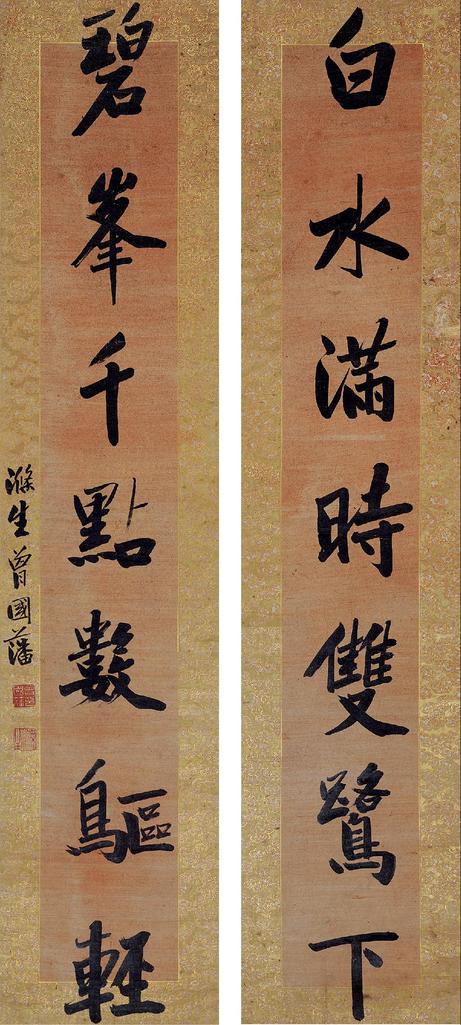 白水滿時雙鷺下
碧峯千點數鷗輕
滌生曾國藩